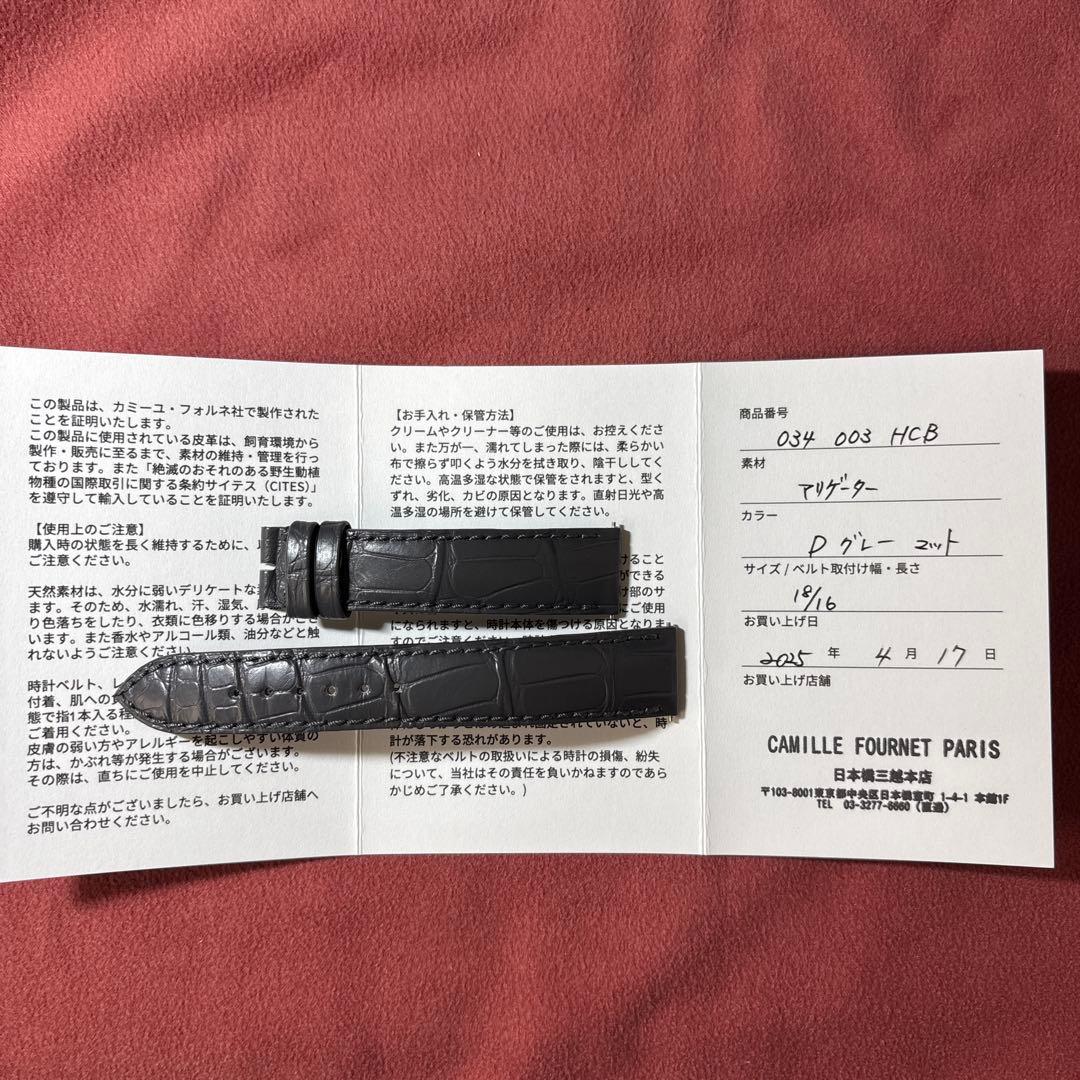 この製品は、カミーユ・フォルネ社で製作された
ことを証明いたします。
この製品に使用されている皮革は、飼育環境から
製作・販売に至るまで、素材の維持・管理を行っ
ております。また「絶滅のおそれのある野生動植
物種の国際取引に関する条約サイテス（CITES）」
を遵守して輸入していることを証明いたします。
【使用上のご注意】
購入時の状態を長く維持するために、
ご注意ください。
天然素材は、水分に弱いデリケートな
ます。そのため、水濡れ、汗、湿気、
り色落ちをしたり、衣類に色移りする場合がござ
います。また香水やアルコール類、油分などと触
れないようご注意ください。
時計ベルト、
付着、肌への
態で指1本入る程
ご着用ください。
皮膚の弱い方やアレルギーを起こしやすい体質の
方は、かぶれ等が発生する場合がございます。
その際は、直ちにご使用を中止してください。
ご不明な点がございましたら、お買い上げ店舗へ
お問い合わせください。
【お手入れ・保管方法】
クリームやクリーナー等のご使用は、お控えくださ
い。また万が一、濡れてしまった際には、柔らかい
布で擦らず叩くよう水分を拭き取り、陰干ししてく
ださい。高温多湿な状態で保管をされますと、型く
ずれ、劣化、カビの原因となります。直射日光や高
温多湿の場所を避けて保管してください。
けること
ができる
け部のサ
にご使用
になられますと、時計本体を傷つける原因となりま
すのでご注意ください。
固定されていないと、時
計が落下する恐れがあります。
(不注意なベルトの取扱いによる時計の損傷、紛失
について、当社はその責任を負いかねますのであら
かじめご了承ください。)
商品番号
034 003 HCB
素材
アリゲーター
カラー
D グレー マット
サイズ / ベルト取付け幅・長さ
18/16
お買い上げ日
2025 年 4 月 17 日
お買い上げ店舗
CAMILLE FOURNET PARIS
日本橋三越本店
〒103-8001東京都中央区日本橋室町 1-4-1 本館1F
TEL 03-3277-8660（直通）